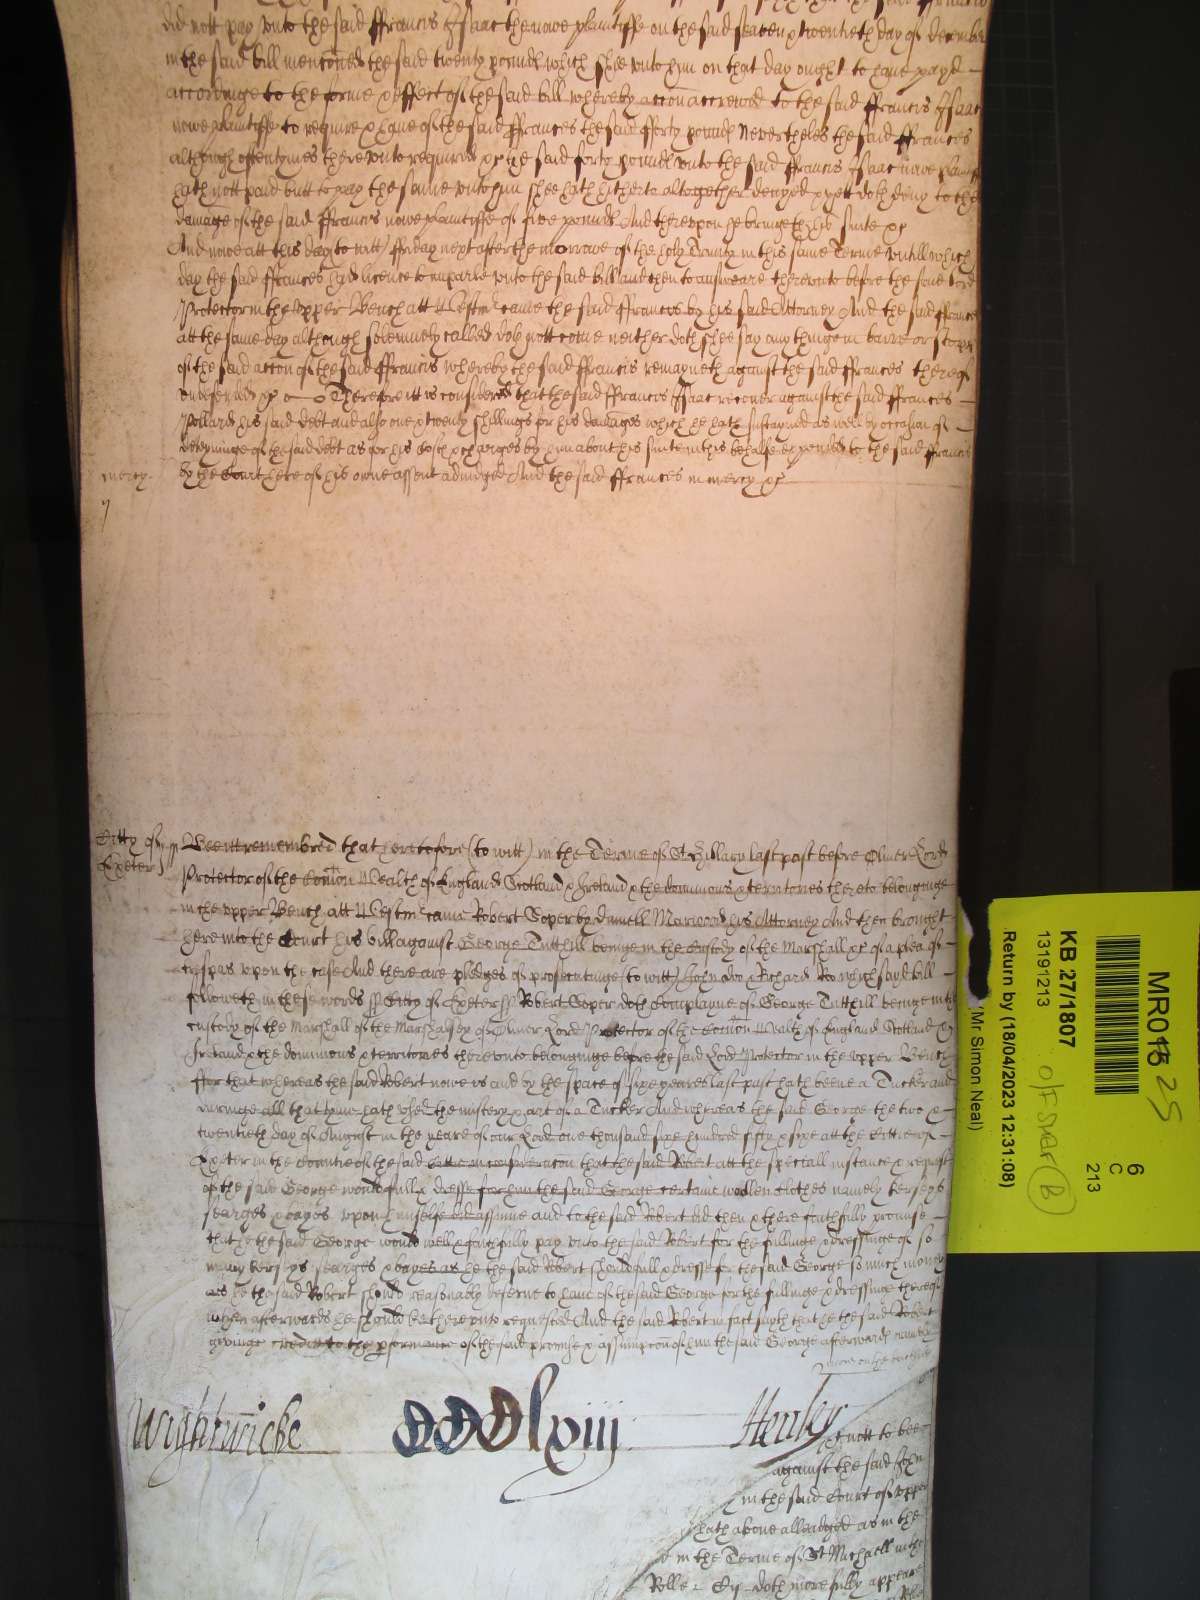 did nott pay vnto the said ffrancis Isaac the nowe plaintiffe on the said seaven & twentieth day of december
in the said bill menconed the said twenty pounds which shee vnto him on that day ought to have payd
accordinge to the forme & effect of the said bill whereby accon accrewed to the said ffrancis Isaac
nowe plaintiffe to require & have of the said ffrances the said fforty pounds Nevertheles the said ffrances
although oftentymes therevnto required &c the said forty pounds vnto the said ffrancis Isaac nowe plaintiff
hath nott paid butt to pay the same vnto him shee hath hitherto altogether denyed & yett doth deny to the
damage of the said ffrancis nowe plaintiffe of five pounds And therevpon he bringeth his suite &c
And nowe att this day (to witt) ffriday next after the morrowe of the holy Trinity in this same Terme vntill which
day the said ffrances had licence to imparle vnto the said bill and then to answeare therevnto before the said Lord
Protector in the vpper Bench att Westm came the said ffrancis by his said Attorney And the said ffrances
att the same day although solemnely called doth nott come neither doth shee say any thinge in barre or stopp
of the said accon of the said ffrancis whereby the said ffrancis remayneth against the said ffrances thereof
vndefended &c Therefore itt is considered that the said ffrancis Isaac recover against the said ffrances
Pollard his said debt and also one & twenty shillings for his damages which he hath sustayned as well by occasion of
deteyninge of the said debt as for his costs & charges by him about his suite in this behalfe expended to the said ffrancis
by the Court here of his owne assent adiudged And the said ffrances in mercy &c
mercy
Citty of
Exeter
ss Bee itt remembred that heretofore (to witt) in the Terme of St Hillary last past before Oliver Lord
Protector of the Comon Wealth of England Scotland & Ireland & the dominions & territories thereto belonginge
in the vpper Bench att Westm came Robert Soper by daniell Marwood his Attorney And then brought
here into the Court his bill against George Tutthill beinge in the Custody of the Marshall &c of a plea of
trespas vpon the case And there are pledges of prosecutinge (to witt) John doo & Richard Roo which said bill
followeth in these words ss Citty of Exeter ss Robert Soper doth Complayne of George Tutthill beinge in the
custody of the Marshall of the Marshalsey of Oliver Lord Protector of the Comon Wealth of England Scotland &
Ireland & the dominions & territories therevnto belonginge before the said Lord Protector in the vpper Bench
ffor that whereas the said Robert nowe is and by the space of sixe yeares last past hath beene a Tucker and
duringe all that tyme hath vsed the mistery & art of a Tucker And whereas the said George the two &
twentieth day of August in the yeare of our Lord one thousand sixe hundred fifty & sixe att the Cittie of
Exeter in the Countie of the said Cittie in consideracon that the said Robert att the speciall instance & request
of the said George would full & dresse for him the said George certaine woollen clothes namely kerseys
searges & bayes vpon himselfe did assume and to the said Robert did then & there faithfully promise
that he the said George would well & faithfully pay vnto the said Robert for the fullinge & dressinge of so
many kerseys searges & bayes as he the said Robert should full & dresse for the said George so much money
as he the said Robert should reasonably deserve to have of the said George for the fullinge & dressinge thereof
when afterwards he should be therevnto requested And the said Robert in fact sayth that he the said Robert
givinge creditt to the pformance of the said promise & assumpcon of him the said George afterwards namely
more on the backside
Wightwicke CCClxiiij Henley
nott to bee
against the said John
in the said Court of vpper
hath above alleadged as in the
in the Terme of St Michaell in the
Rolle doth more fully appeare
MR018 25
6
C
213
KB 27/1807
13191213
Return by (18/04/2023 12:31:08)
(Mr Simon Neal)